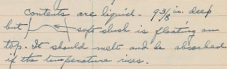 Contents are liquid. 9 3/8 in. deep
but soft slush is floating on
top. It should melt and be absorbed
if the temperature rises.